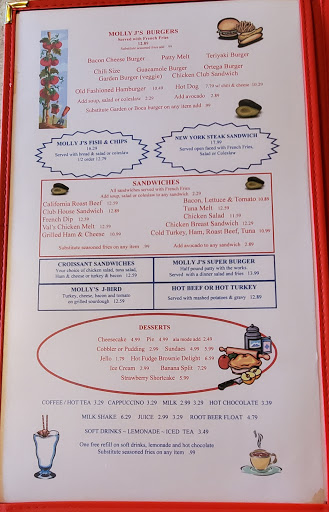 MOLLY J'S BURGERS
Served with French Fries
12.89
Substitute seasoned fries add .99
Bacon Cheese Burger Patty Melt Teriyaki Burger
Chili Size Guacamole Burger Ortega Burger
Garden Burger (veggie) Chicken Club Sandwich
Old Fashioned Hamburger 10.49 Hot Dog 7.99 w/ chili & cheese 10.29
Add soup, salad or coleslaw 2.29 Add avocado 2.89
Substitute Garden or Boca burger on any item add .99
MOLLY J'S FISH & CHIPS
16.29
Served with bread & salad or coleslaw
1/2 order 12.79
NEW YORK STEAK SANDWICH
17.99
Served open faced with French Fries,
Salad or Coleslaw
SANDWICHES
All sandwiches served with French Fries.
Add soup, salad or coleslaw to any sandwich 2.29
California Roast Beef 12.59
Club House Sandwich 12.89
French Dip 12.59
Val's Chicken Melt 12.59
Grilled Ham & Cheese 10.99
Bacon, Lettuce & Tomato 10.99
Tuna Melt 12.59
Chicken Salad 11.59
Chicken Breast Sandwich 12.29
Cold Turkey, Ham, Roast Beef, Tuna 10.99
Substitute seasoned fries on any item .99 Add avocado to any sandwich 2.89
CROISSANT SANDWICHES
Your choice of chicken salad, tuna salad,
Ham & cheese or turkey & bacon 12.59
MOLLY J'S SUPER BURGER
Half pound patty with the works.
Served with a dinner salad and fries 13.99
MOLLY'S J-BIRD
Turkey, cheese, bacon and tomato
on grilled sourdough 12.59
HOT BEEF OR HOT TURKEY
Served with mashed potatoes & gravy 12.89
DESSERTS
Cheesecake 4.99 Pie 4.99 ala mode add 2.49
Cobbler or Pudding 2.99 Sundaes 4.99 5.99
Jello 1.79 Hot Fudge Brownie Delight 6.59
Ice Cream 3.99 Banana Split 7.29
Strawberry Shortcake 5.99
COFFEE / HOT TEA 3.29 CAPPUCCINO 3.29 MILK 2.99 3.29 HOT CHOCOLATE 3.39
MILK SHAKE 6.29 JUICE 2.99 3.29 ROOT BEER FLOAT 4.79
SOFT DRINKS ~ LEMONADE ~ ICED TEA 3.49
One free refill on soft drinks, lemonade and hot chocolate
Substitute seasoned fries on any item .99